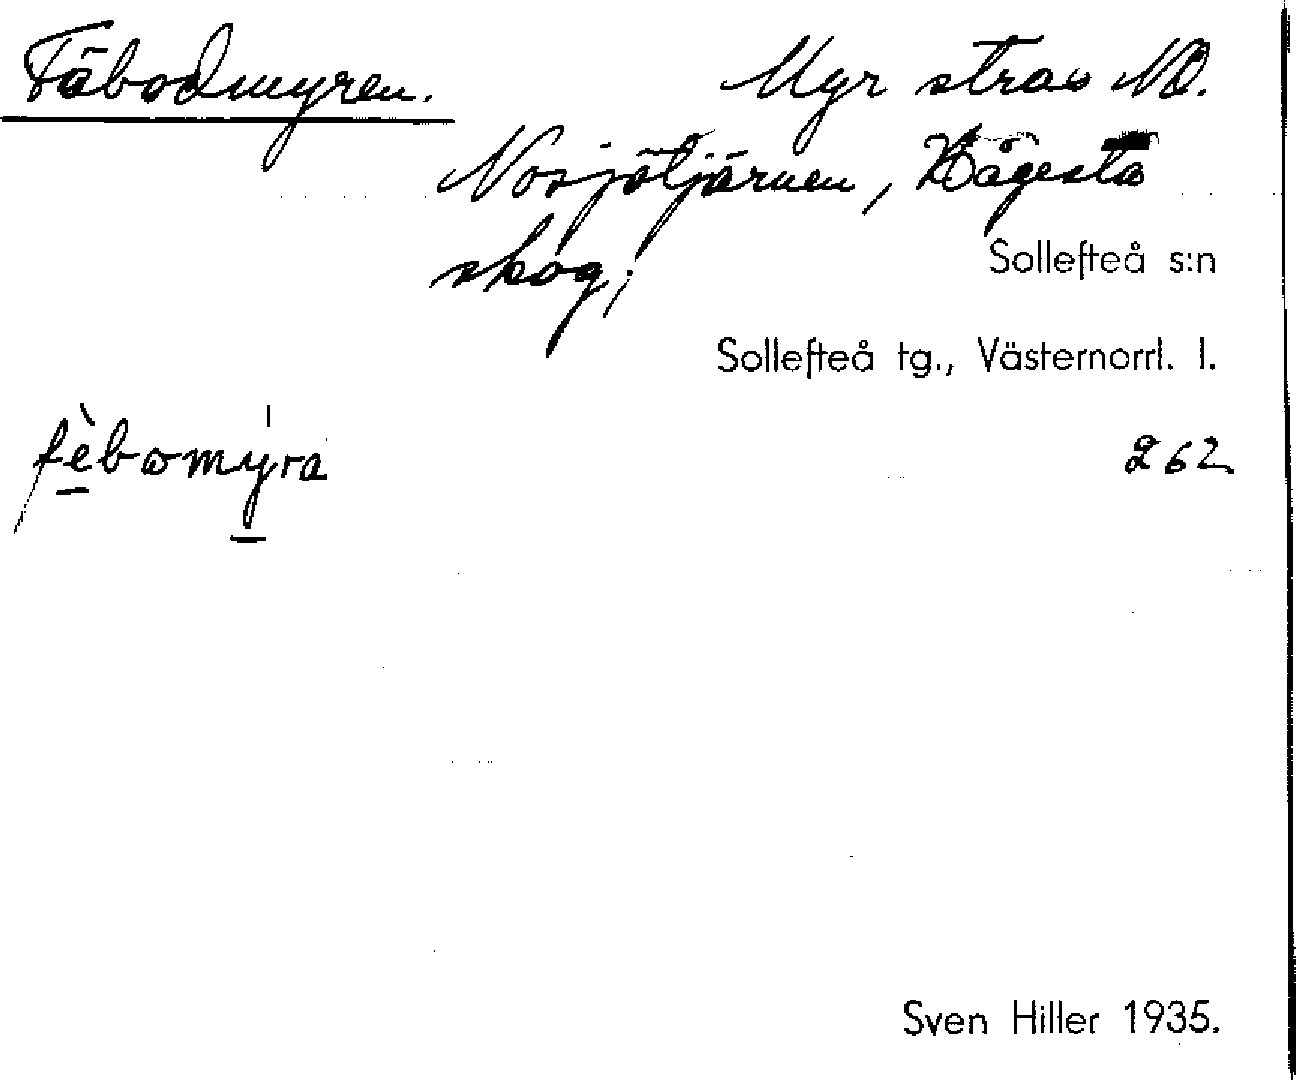 Fäbodmyren.
Myr strax NO.
Nosjötjärnen, Hågesta
skog;
Sollefteå s:n
Sollefteå tg., Västernorrl. l.
fèbomyra
262
Sven Hiller 1935.